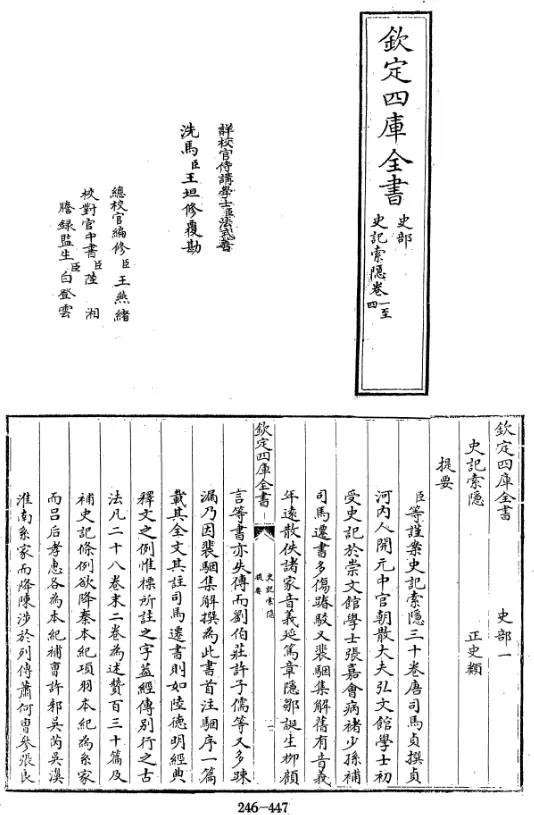 欽定四庫全書
史部
史記索隱卷一至四
詳校官侍講學士臣法式善
洗馬臣王坦修覆勘
總校官編修臣王燕緒
校對官中書臣陸湘
謄録監生臣白登雲
欽定四庫全書
史部一
史記索隱
正史類
提要
臣等謹案史記索隱三十卷唐司馬貞撰貞
河内人開元中官朝散大夫弘文館學士初
受史記於崇文館學士張嘉會病褚少孫補
司馬遷書多傷踳駁又裴駰集解舊有音義
年遠散佚諸家音義延篤章隱鄒誕生栁顧
欽定四庫全書
史記索隱
提要
一
言等書亦失傳而劉伯莊許子儒等又多踈
漏乃因裴駰集解撰為此書首注駰序一篇
載其全文其註司馬遷書則如陸德明經典
釋文之例惟標所註之字葢經傳别行之古
法凡二十八卷末二卷為述贊百三十篇及
補史記條例欲降秦本紀項羽本紀為系家
而吕后孝惠各為本紀補曹許邾吳芮吳濞
淮南系家而降陳渉於列傳蕭何曹參張良
246-447